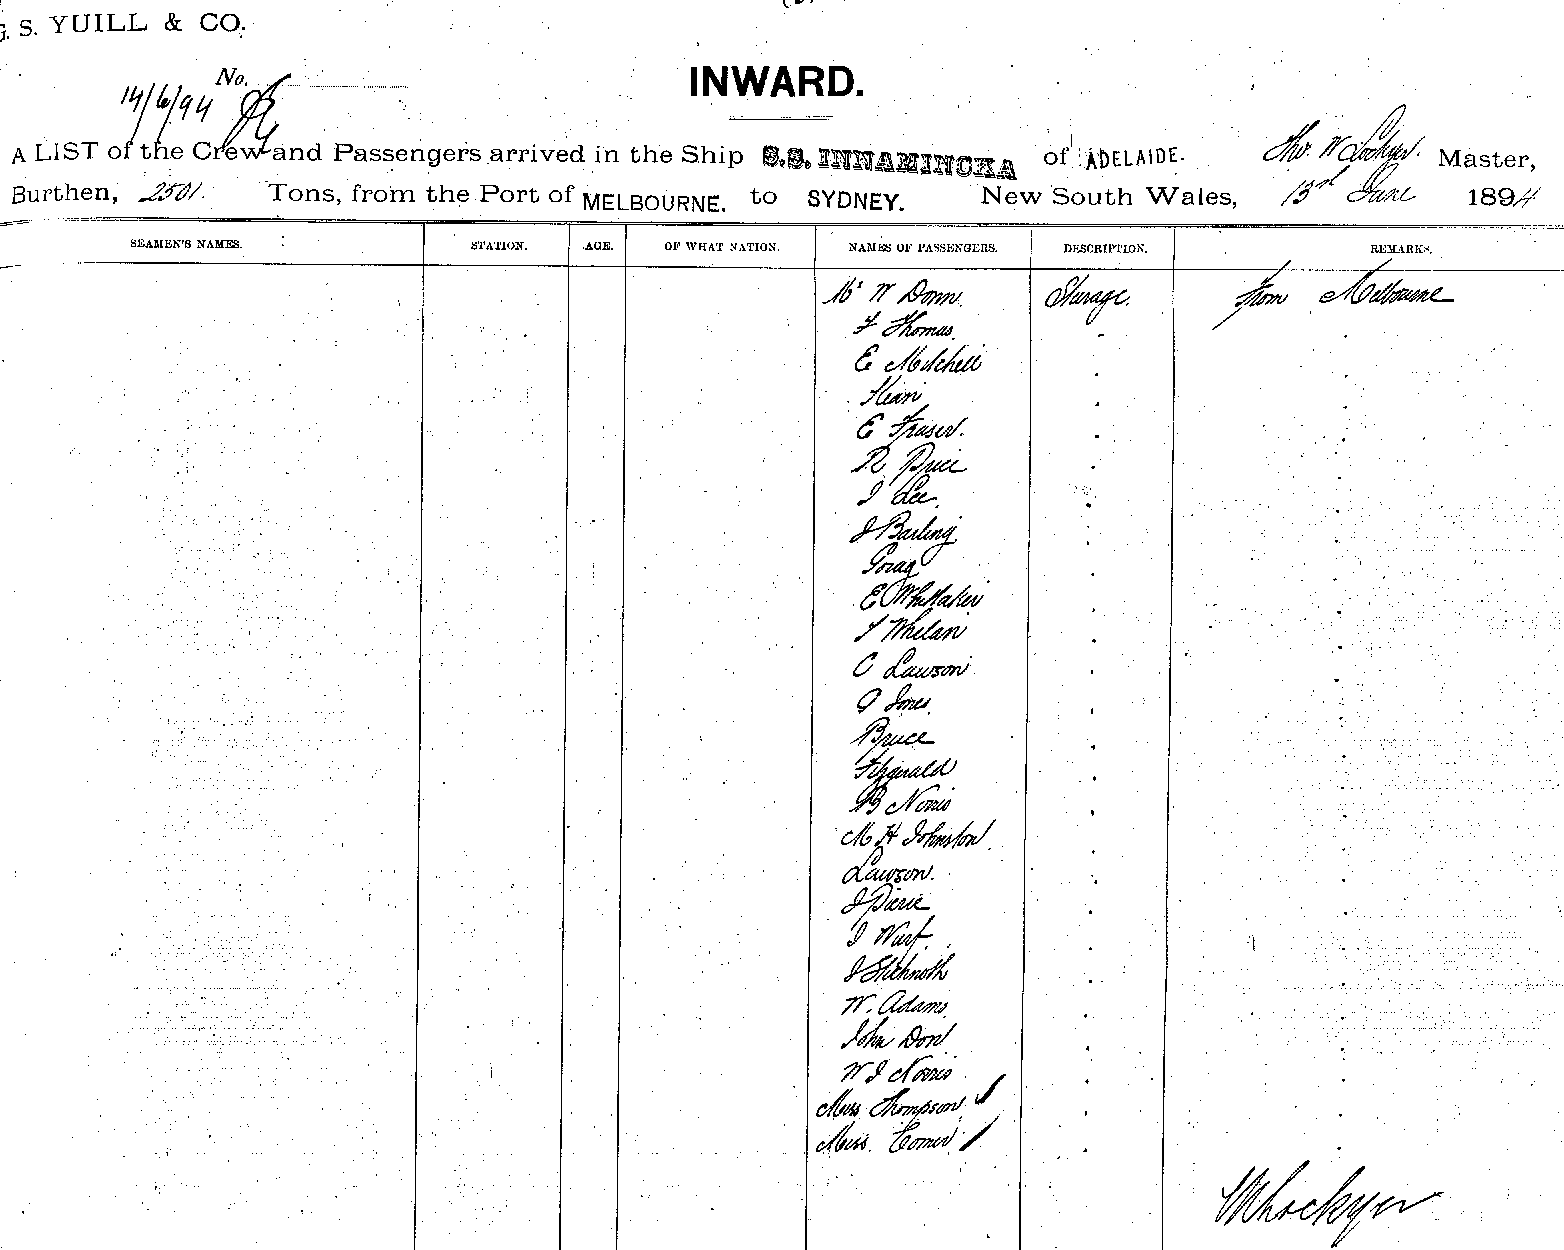 G. S. YUILL & CO.
No.
14/6/94
INWARD.
A LIST of the Crew and Passengers arrived in the Ship S.S. INNAMINCKA of ADELAIDE. Tho. W Lockyer. Master,
Burthen, 2501. Tons, from the Port of MELBOURNE. to SYDNEY. New South Wales, 13th June 1894
SEAMEN'S NAMES. STATION. AGE. OF WHAT NATION. NAMES OF PASSENGERS. DESCRIPTION. REMARKS.
Mr W Donn. Steerage. From Melbourne
F Thomas.
E Mitchell
Kean
E Fraser.
R Price
J Lee.
J Barling
E Whittaker
T Whelan
C Lawson
G Jones.
Bruce
Fitzgerald
B Norris
M H Johnston.
Lawson.
J Pierie
J
J
W. Adams.
John Don
W J Norris
Miss Thompson
Miss
W Lockyer